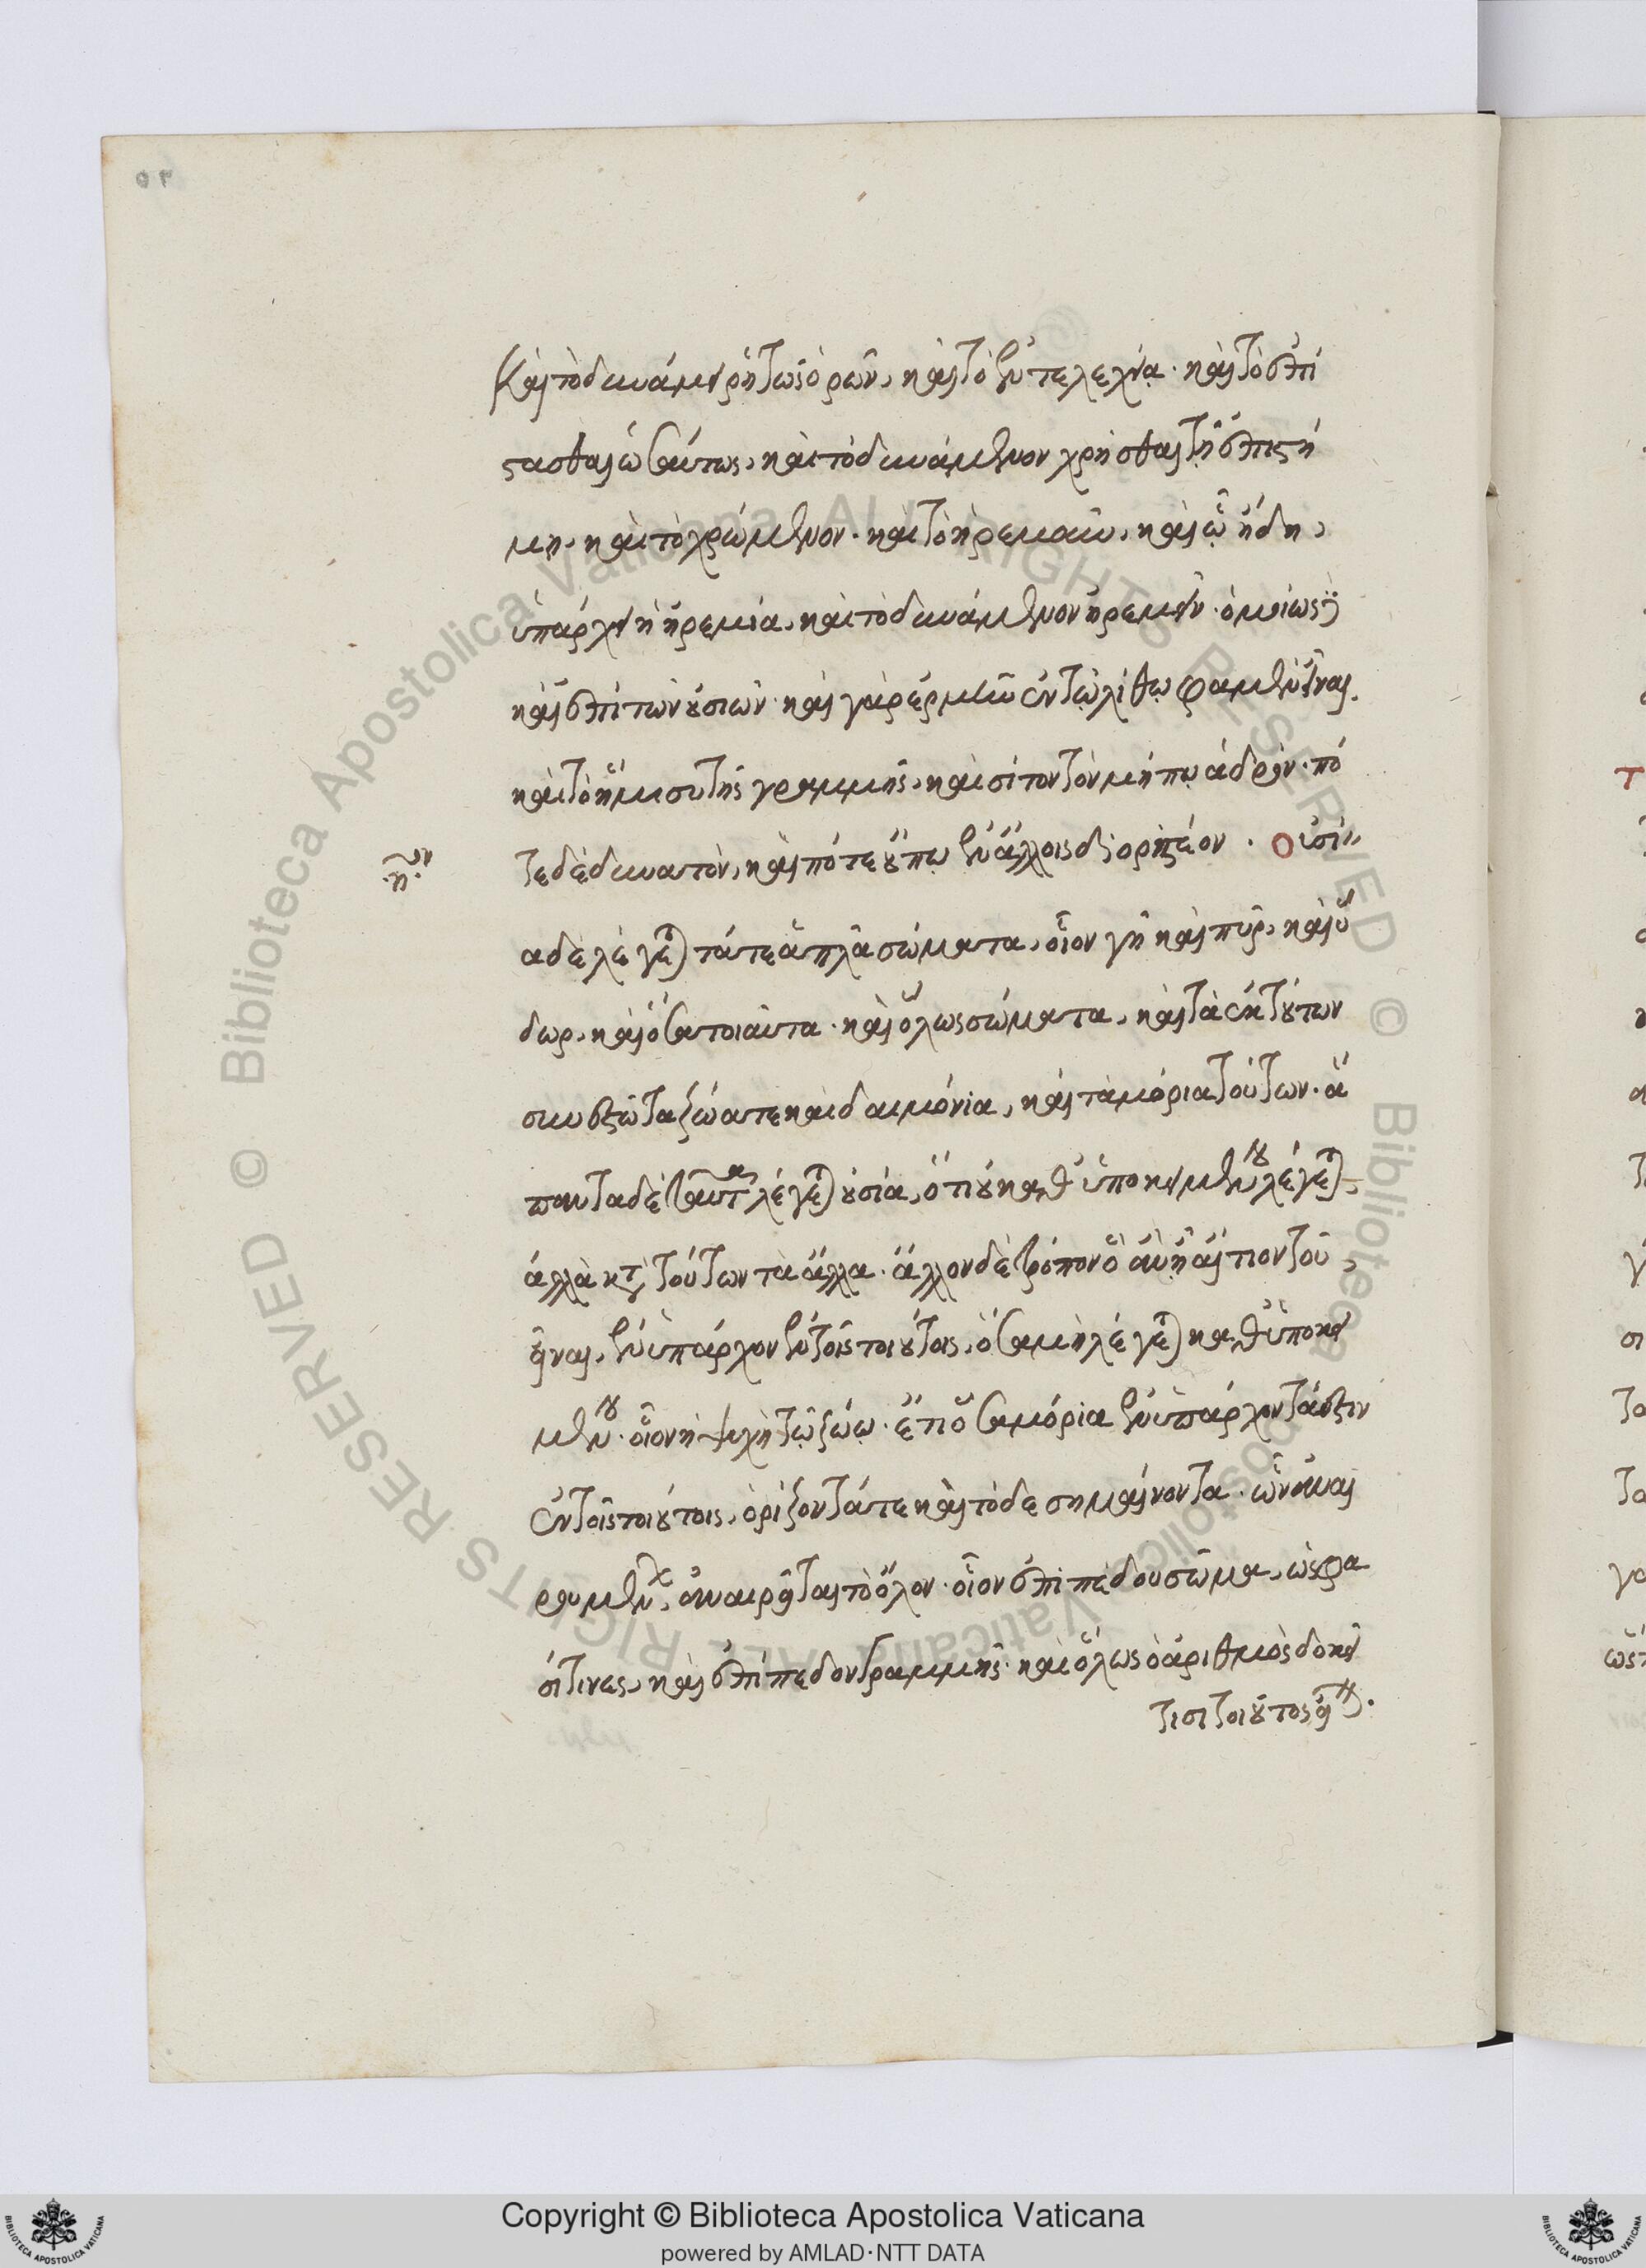 καὶ τὸ δυνάμει ῥητῶς ὁρῶν, καὶ τὸ ἐντελεχεία. καὶ τὸ ἐπί
στασθαι ὡσαύτως, καὶ τὸ δυνάμενον χρῆσθαι τῇ ἐπιστή
μῃ, καὶ τὸ χρώμενον. καὶ τὸ ἠρεμοῦν, καὶ ᾧ ἤδη,
ὑπάρχει ἡ ἠρεμία, καὶ τὸ δυνάμενον ἠρεμεῖν. ὁμοίως δὲ
καὶ ἐπὶ τῶν οὐσιῶν. καὶ γὰρ ἑρμῆν ἐν τῷ λίθῳ φαμὲν εἶναι.
καὶ τὸ ἥμισυ τῆς γραμμῆς, καὶ σίτον τὸν μήπω ἁδρόν. πό
τε δὲ δυνατὸν, καὶ πότε οὔπω ἐν ἄλλοις διοριστέον. Οὐσί
α δὲ λέγεται τά τε ἁπλᾶ σώματα, οἷον γῆ καὶ πῦρ, καὶ ὕ
δωρ, καὶ ὅσα τοιαῦτα. καὶ ὅλως σώματα, καὶ τὰ ἐκ τούτων
συνεστῶτα ζῶά τε καὶ δαιμόνια, καὶ τὰ μόρια τούτων. ἅ
παντα δὲ ταῦτα λέγεται οὐσία, ὅτι οὐ καθ' ὑποκειμένου λέγεται,
ἀλλὰ κατὰ τούτων τὰ ἄλλα. ἄλλον δὲ τρόπον ὃ ἂν ᾖ αἴτιον τοῦ
εἶναι, ἐνυπάρχον ἐν τοῖς τοιούτοις, ὅσα μὴ λέγεται καθ' ὑποκει
μένου. οἷον ἡ ψυχὴ τῷ ζώῳ. ἔτι ὅσα μόρια ἐνυπάρχοντά ἐστιν
ἐν τοῖς τοιούτοις, ὁρίζοντά τε καὶ τόδε σημαίνοντα. ὧν ἀναι
ρουμένων, ἀναιρεῖται τὸ ὅλον. οἷον ἐπιπέδου σῶμα, ὥς φα
σί τινες, καὶ ἐπίπεδον γραμμῆς. καὶ ὅλως ὁ ἀριθμὸς δοκεῖ
τισὶ τοιοῦτος εἶναι.